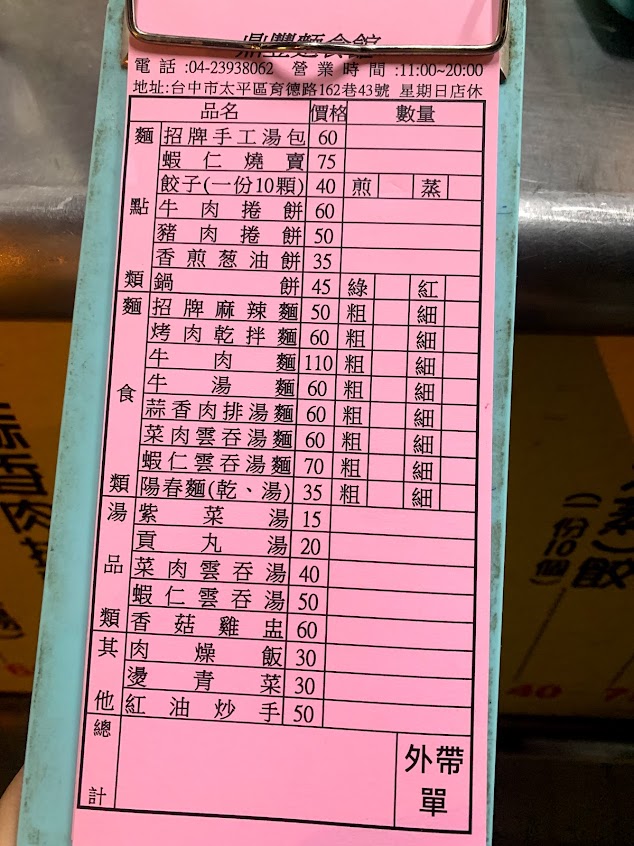 鼎豐麵食館
電話:04-23938062 營業時間:11:00~20:00
地址:台中市太平區育德路162巷43號 星期日店休
品名 價格 數量
麵點類
招牌手工湯包 60
蝦仁燒賣 75
餃子(一份10顆) 40 煎 蒸
牛肉捲餅 60
豬肉捲餅 50
香煎葱油餅 35
鍋餅 45 綠 紅
麵食類
招牌麻辣麵 50 粗 細
烤肉乾拌麵 60 粗 細
牛肉麵 110 粗 細
牛湯麵 60 粗 細
蒜香肉排湯麵 60 粗 細
菜肉雲吞湯麵 60 粗 細
蝦仁雲吞湯麵 70 粗 細
陽春麵(乾、湯) 35 粗 細
湯品類
紫菜湯 15
貢丸湯 20
菜肉雲吞湯 40
蝦仁雲吞湯 50
香菇雞盅 60
其他
肉燥飯 30
燙青菜 30
紅油炒手 50
總計
外帶單
蒜香肉排
(一份10個)
40